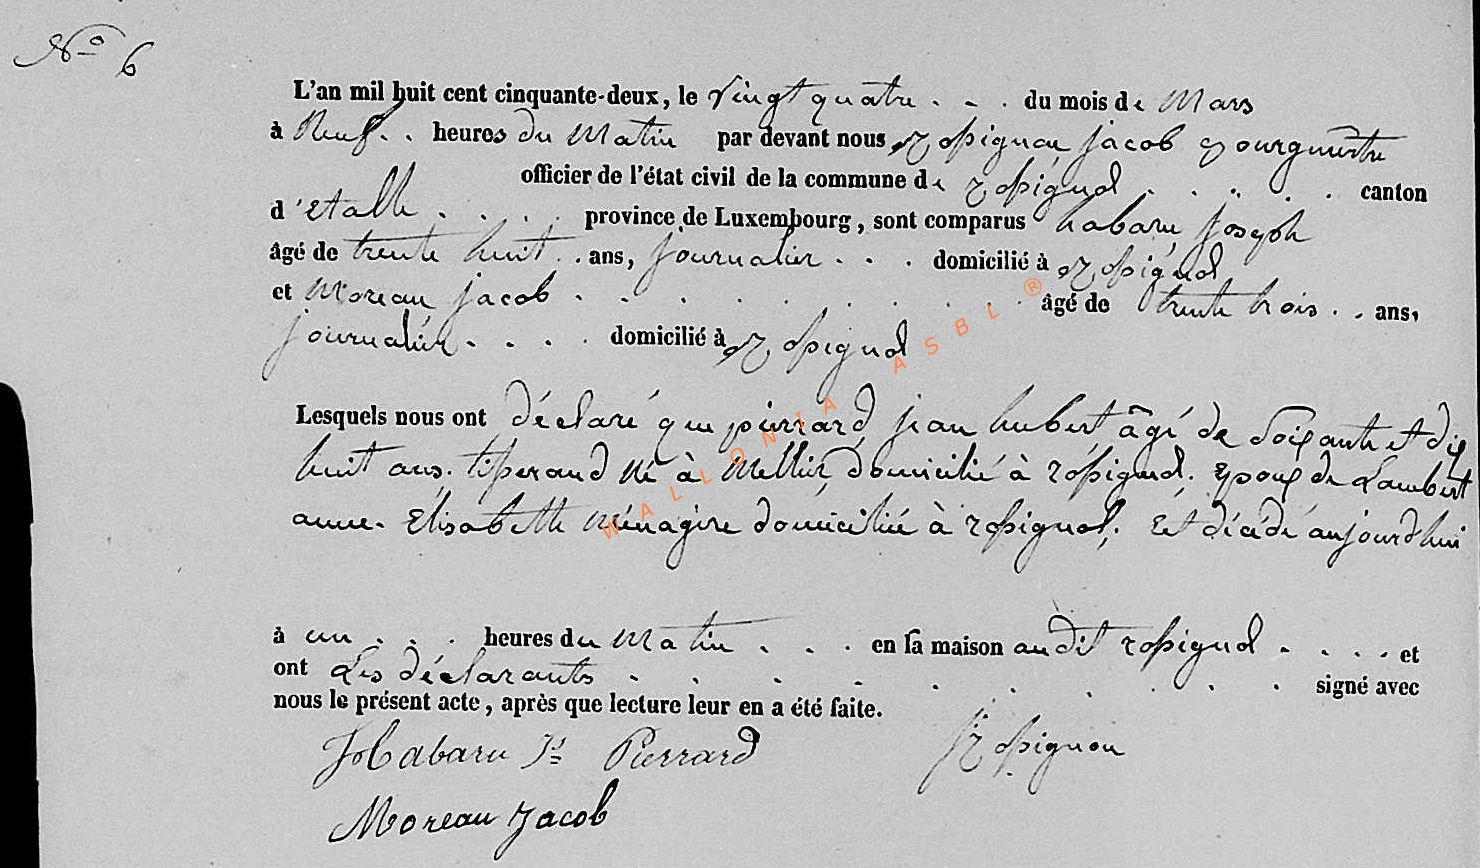 No 6
L'an mil huit cent cinquante-deux, le vingt quatre . . . du mois de Mars
à Neuf . . heures du Matin par devant nous Rossignon jacob Bourgmestre
officier de l'état civil de la commune de rossignol . . . . . canton
d'etalle . . . . province de Luxembourg, sont comparus habaru joseph
âgé de trente huit . . ans, journalier . . . domicilié à Rossignol
et Moreau jacob . . . . . . . . . . . âgé de trente trois . . ans,
journalier . . . . domicilié à Rossignol
Lesquels nous ont déclaré que pierrard jean hubert âgé de soixante et dix
huit ans. tisserand né à Mellier, domicilié à rossignol. Epoux de Lambert
anne. Elisabeth ménagère domiciliée à rossignol; Est décédé aujourdhui
à un . . . heures du Matin . . . en sa maison audit rossignol . . . . et
ont Les déclarants . . . . . . . . . . signé avec
nous le présent acte, après que lecture leur en a été faite.
JHabaru Js Pierrard jRossignon
Moreau Jacob
WALLONIA ASBL ®